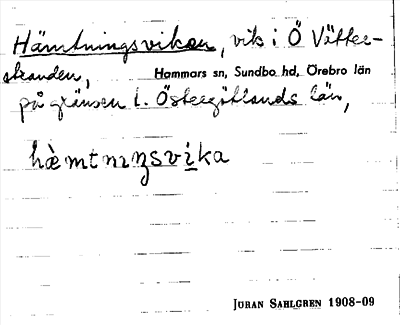 Hämtningsvikan, vik i Ö Vätter-
stranden, Hammars sn, Sundbo hd, Örebro län
på gränsen t. Östergötlands län,
hæ̀mtnıŋsvi̱ka
JÖRAN SAHLGREN 1908-09